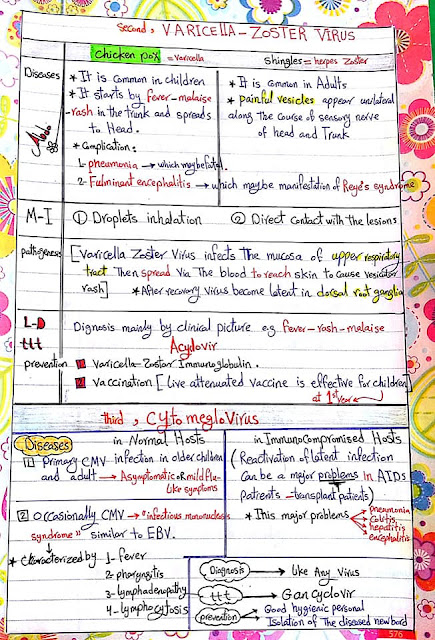 second, VARICELLA-ZOSTER VIRUS
Chicken pox = varicella
Shingles = herpes Zoster
Diseases
* It is common in children
* It starts by fever-malaise
-rash in the trunk and spreads
to Head.
* Complication:
1- pneumonia → which may be fatal.
2- Fulminant encephalitis → which maybe manifestation of Reye's syndrome
* It is common in Adults
* painful vesicles appear unilateral
along the course of sensory nerve
of head and Trunk
M-I
① Droplets inhalation
② Direct contact with the lesions
pathogenesis
[Varicella Zoster Virus infects the mucosa of upper respiratory
tract Then spread Via The blood to reach skin to cause vesicular
rash]
* After recovery virus become latent in dorsal root ganglia
L-D
Dignosis mainly by clinical picture e.g. fever-rash-malaise
ttt
Acyclovir
prevention
1 Varicella-Zostar Immunoglobulin.
2 vaccination [Live attenuated vaccine is effective for children]
at 1st year
third, CytomegloVirus
Diseases
in Normal Hosts
1 Primary CMV infection in older children
and adult → Asymptomatic or mild flu-
like symptoms
2 Occasionally CMV → "infectious mononucleosis
syndrome" similar to EBV.
* Characterized by
1- fever
2- pharyngitis
3- lymphadenopathy
4- lymphocytosis
in ImmunoCompromised Hosts
(Reactivation of latent infection
Can be a major problems In AIDs
Patients - transplant patients)
* This major problems
pneumonia
colitis
hepatitis
encephalitis
Diagnosis → like Any Virus
ttt → Gancyclovir
prevention
Good hygienic personal
Isolation of The diseased newborn
576